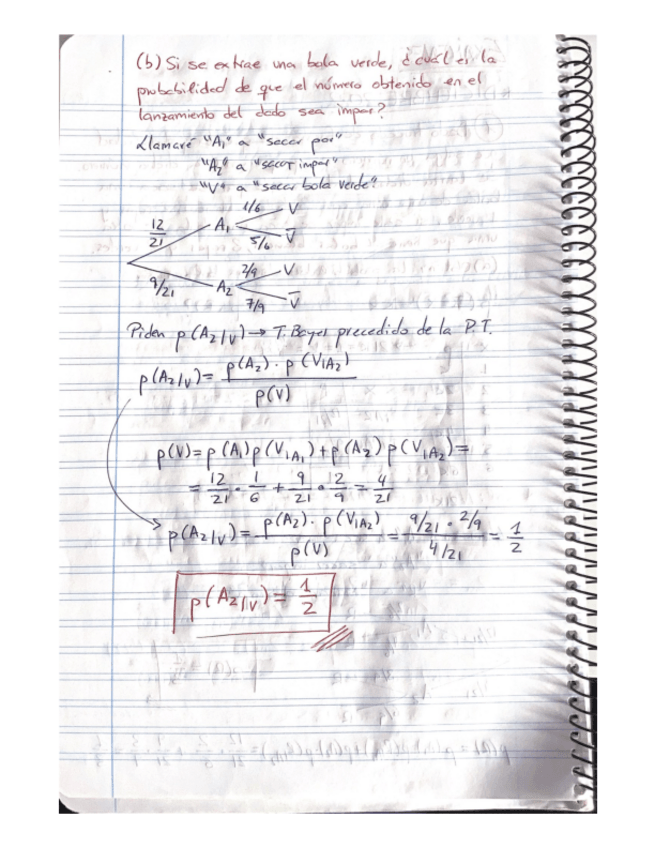 (b) Si se extrae una bola verde, ¿cuál es la
probabilidad de que el número obtenido en el
lanzamiento del dado sea impar?
Llamaré "A₁" a "sacar par"
"A₂" a "sacar impar"
"V" a "sacar bola verde"
12/21 A₁ 1/6 V
5/6 V̅
9/21 A₂ 2/9 V
7/9 V̅
Piden p(A₂/V) → T. Bayes precedido de la P.T.
p(A₂/V) = p(A₂) · p(V/A₂) / p(V)
p(V) = p(A₁)p(V/A₁) + p(A₂)p(V/A₂) =
= 12/21 · 1/6 + 9/21 · 2/9 = 4/21
p(A₂/V) = p(A₂) · p(V/A₂) / p(V) = 9/21 · 2/9 / 4/21 = 1/2
p(A₂/V) = 1/2